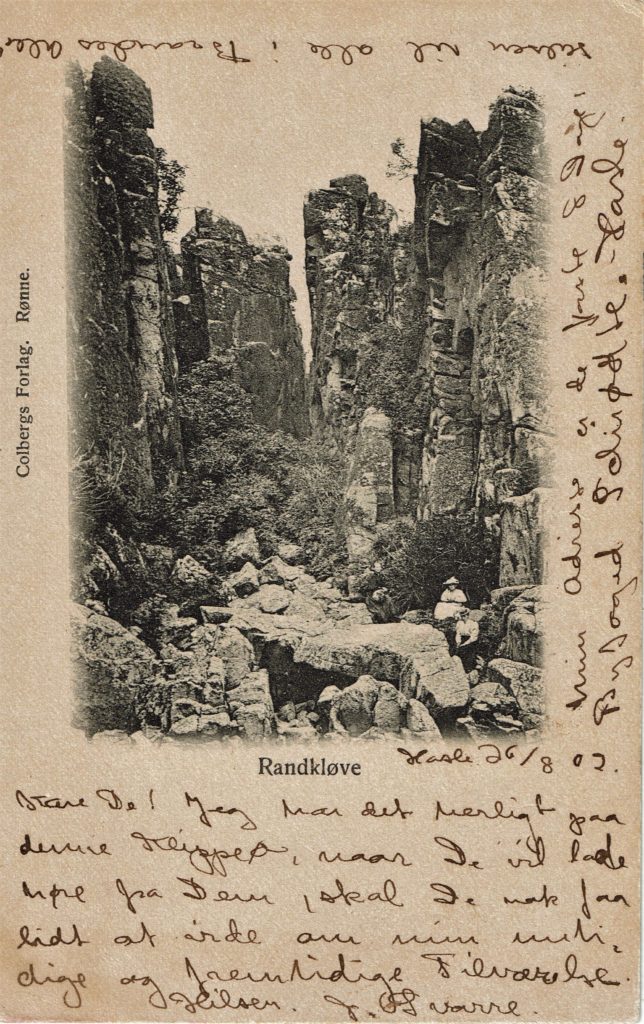 Colbergs Forlag. Rønne.
Randkløve
Hasle 26/8 02.
Kære De! Jeg har det herligt paa
denne Klippeø, naar De vil lade
høre fra Dem, skal De nok faa
lidt at vide om min nuti-
dige og fremtidige Tilværelse.
Hilsen. J. Svarre.
Min Adresse er de første 8 Dage:
Byfoged Schiødte. Hasle.
Hilsen til alle i Brandes Allé